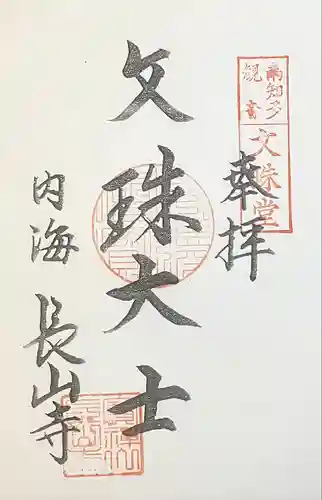 南知多
観音
文殊堂
奉拝
文珠大士
内海
長山寺